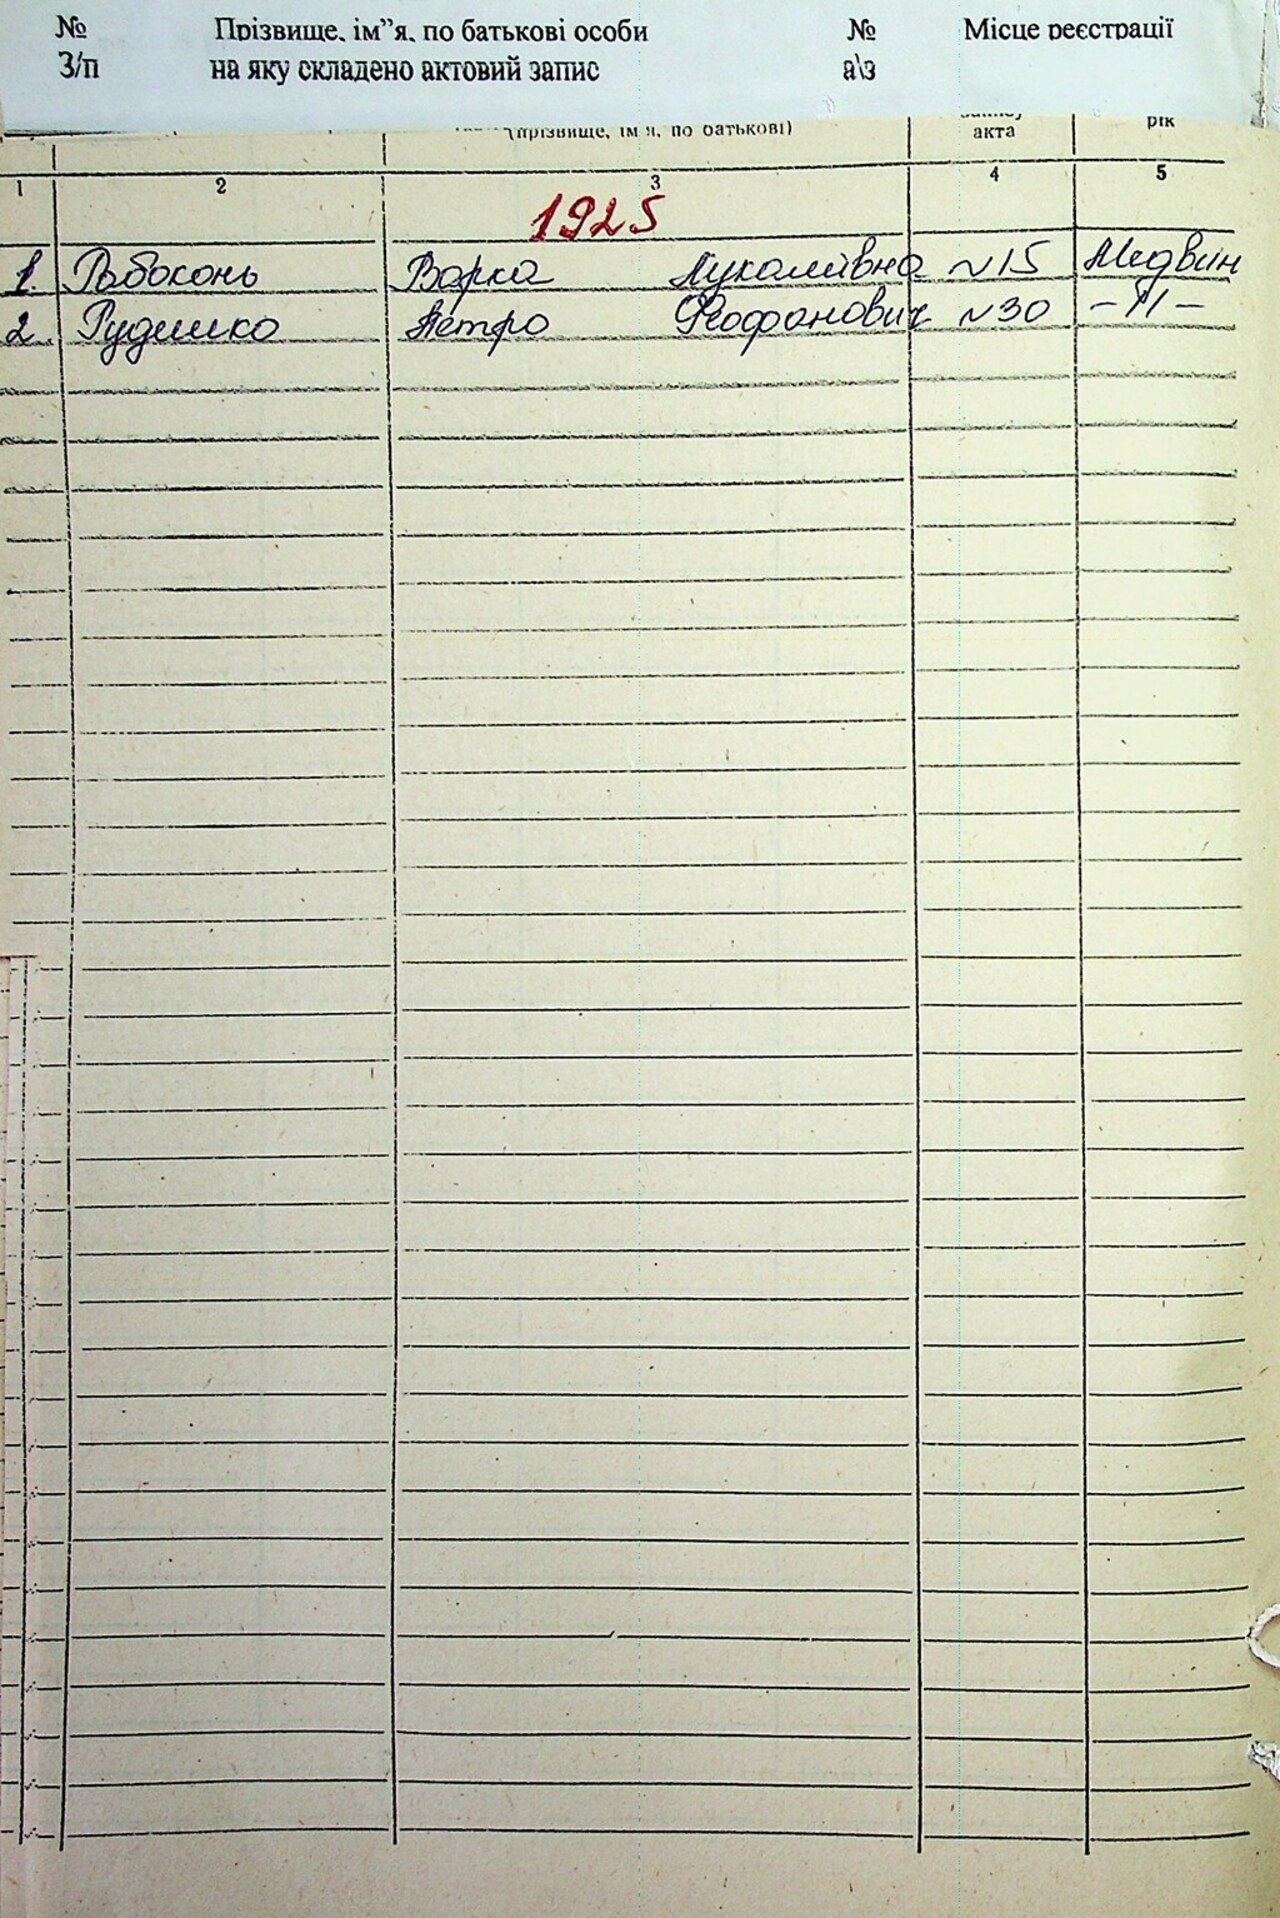 № Прізвище, ім”я, по батькові особи № Місце реєстрації
З/п на яку складено актовий запис а\з
(прізвище, ім'я, по батькові) акта рік
1 2 3 4 5
1925
1. Рябоконь Варка №15 Медвин
2. Рудишко Петро Феофанович №30 -"-